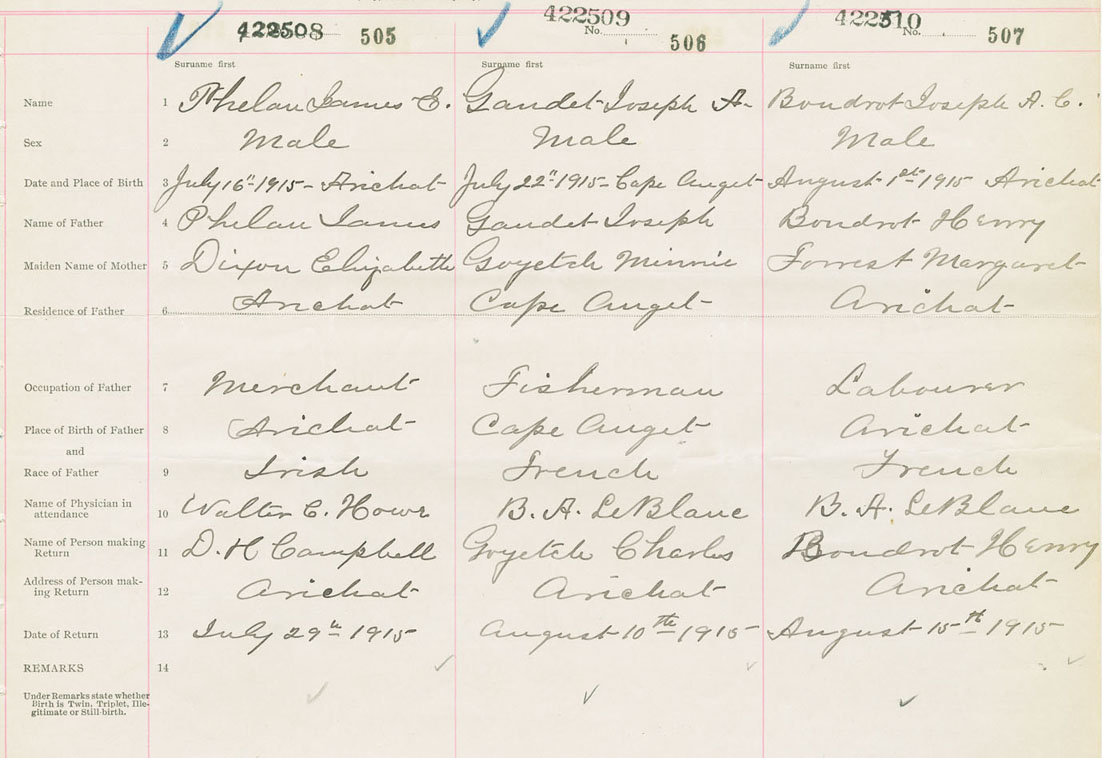 422508 505 422509 No. 506 422510 No. 507
Surname first Surname first Surname first
Name 1 Phelan James E. Gaudet Joseph A. Boudrot Joseph A. C.
Sex 2 Male Male Male
Date and Place of Birth 3 July 16" 1915 - Arichat July 22" 1915 - Cape Auget August 1st 1915 Arichat
Name of Father 4 Phelan James Gaudet Joseph Boudrot Henry
Maiden Name of Mother 5 Dixon Elizabeth Goyetch Minnie Forrest Margaret
Residence of Father 6 Arichat Cape Auget Arichat
Occupation of Father 7 Merchant Fisherman Labourer
Place of Birth of Father 8 Arichat Cape Auget Arichat
and
Race of Father 9 Irish French French
Name of Physician in
attendance 10 Walter C. Howe B. A. LeBlanc B. A. LeBlanc
Name of Person making
Return 11 D. H Campbell Goyetch Charles Boudrot Henry
Address of Person mak-
ing Return 12 Arichat Arichat Arichat
Date of Return 13 July 29th 1915 August 10th 1915 August 15th 1915
REMARKS 14
Under Remarks state whether
Birth is Twin, Triplet, Ille-
gitimate or Still-birth.